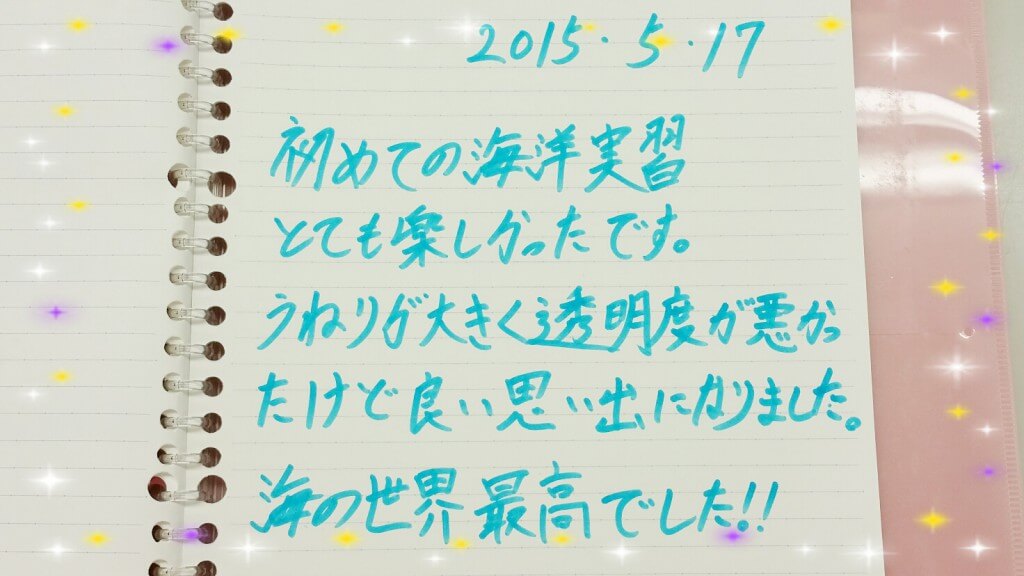 2015・5・17
初めての海洋実習
とても楽しかったです。
うねりが大きく透明度が悪かっ
たけど良い思い出になりました。
海の世界最高でした!!